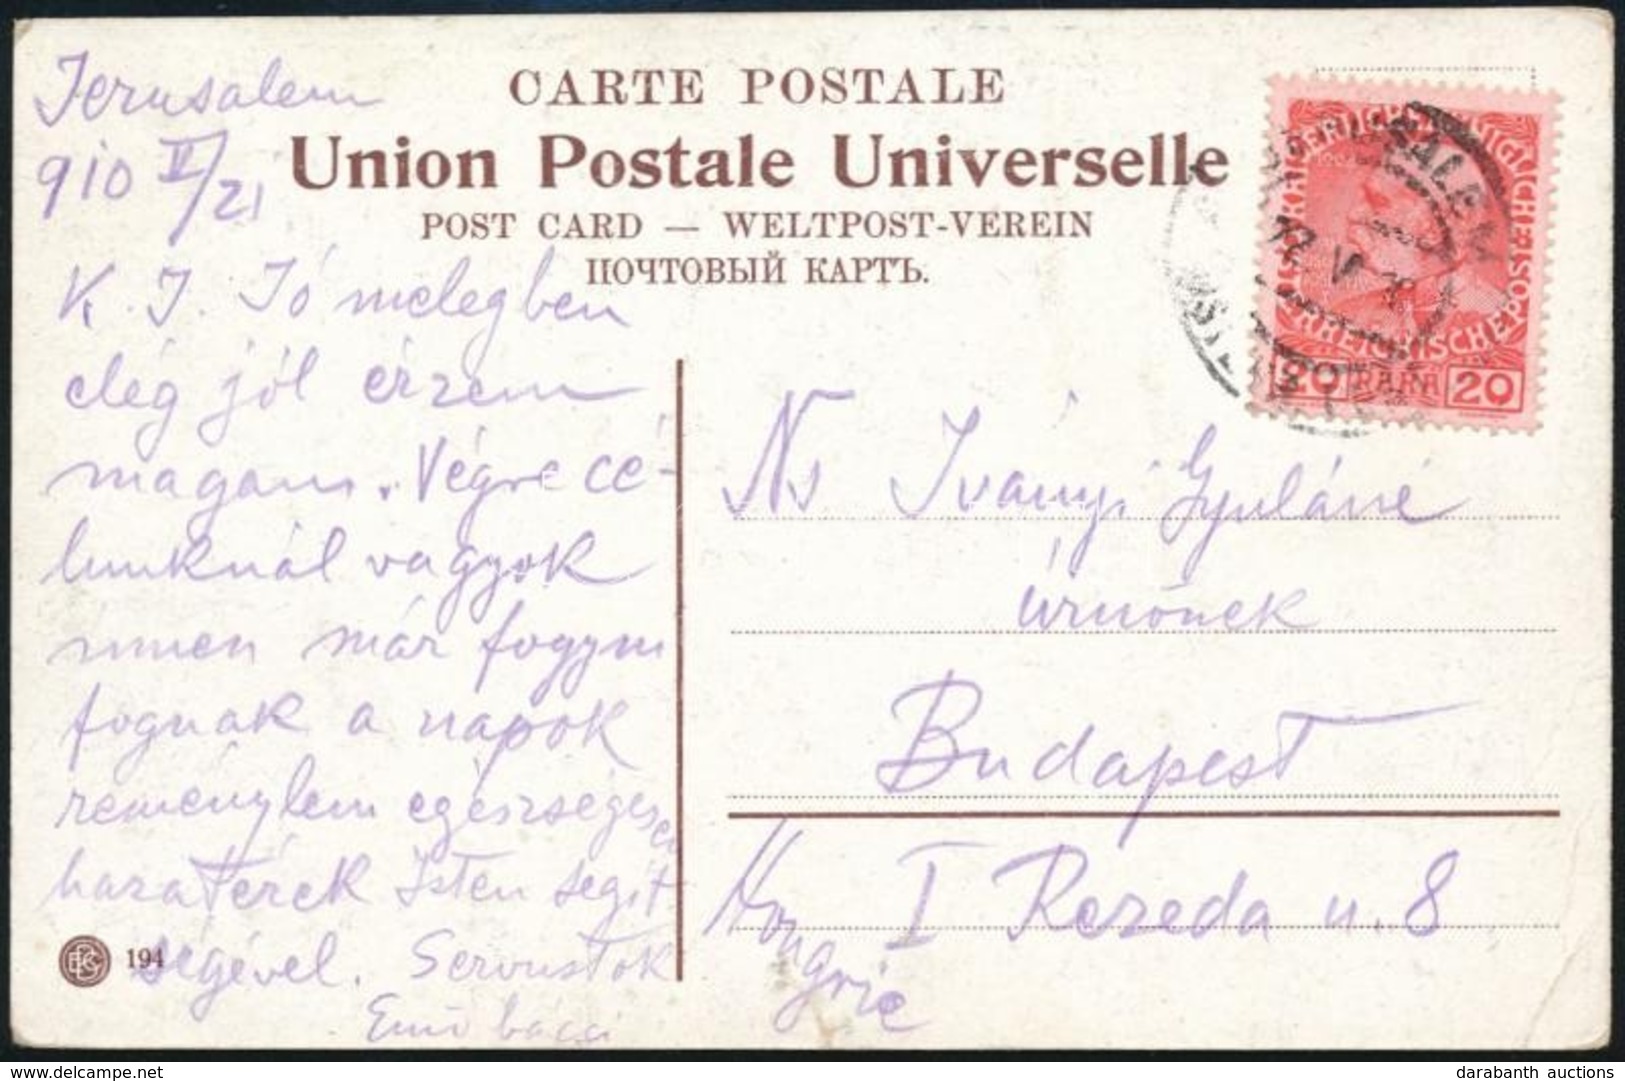 Jerusalem
910 V/21
K. J. Jó melegben
elég jól érzem
magam. Végre cé-
lunknál vagyok
innen már fogyni
fognak a napok
reménylem egészségesen
hazatérek Isten segít
ségével. Servustok
Ernő bácsi
194
CARTE POSTALE
Union Postale Universelle
POST CARD — WELTPOST-VEREIN
ПОЧТОВЫЙ КАРТЪ.
20 PARA 20
Ns Iványi Gyuláné
úrnőnek
Budapest
I Rezeda u. 8
Hongrie
darabanth auctions